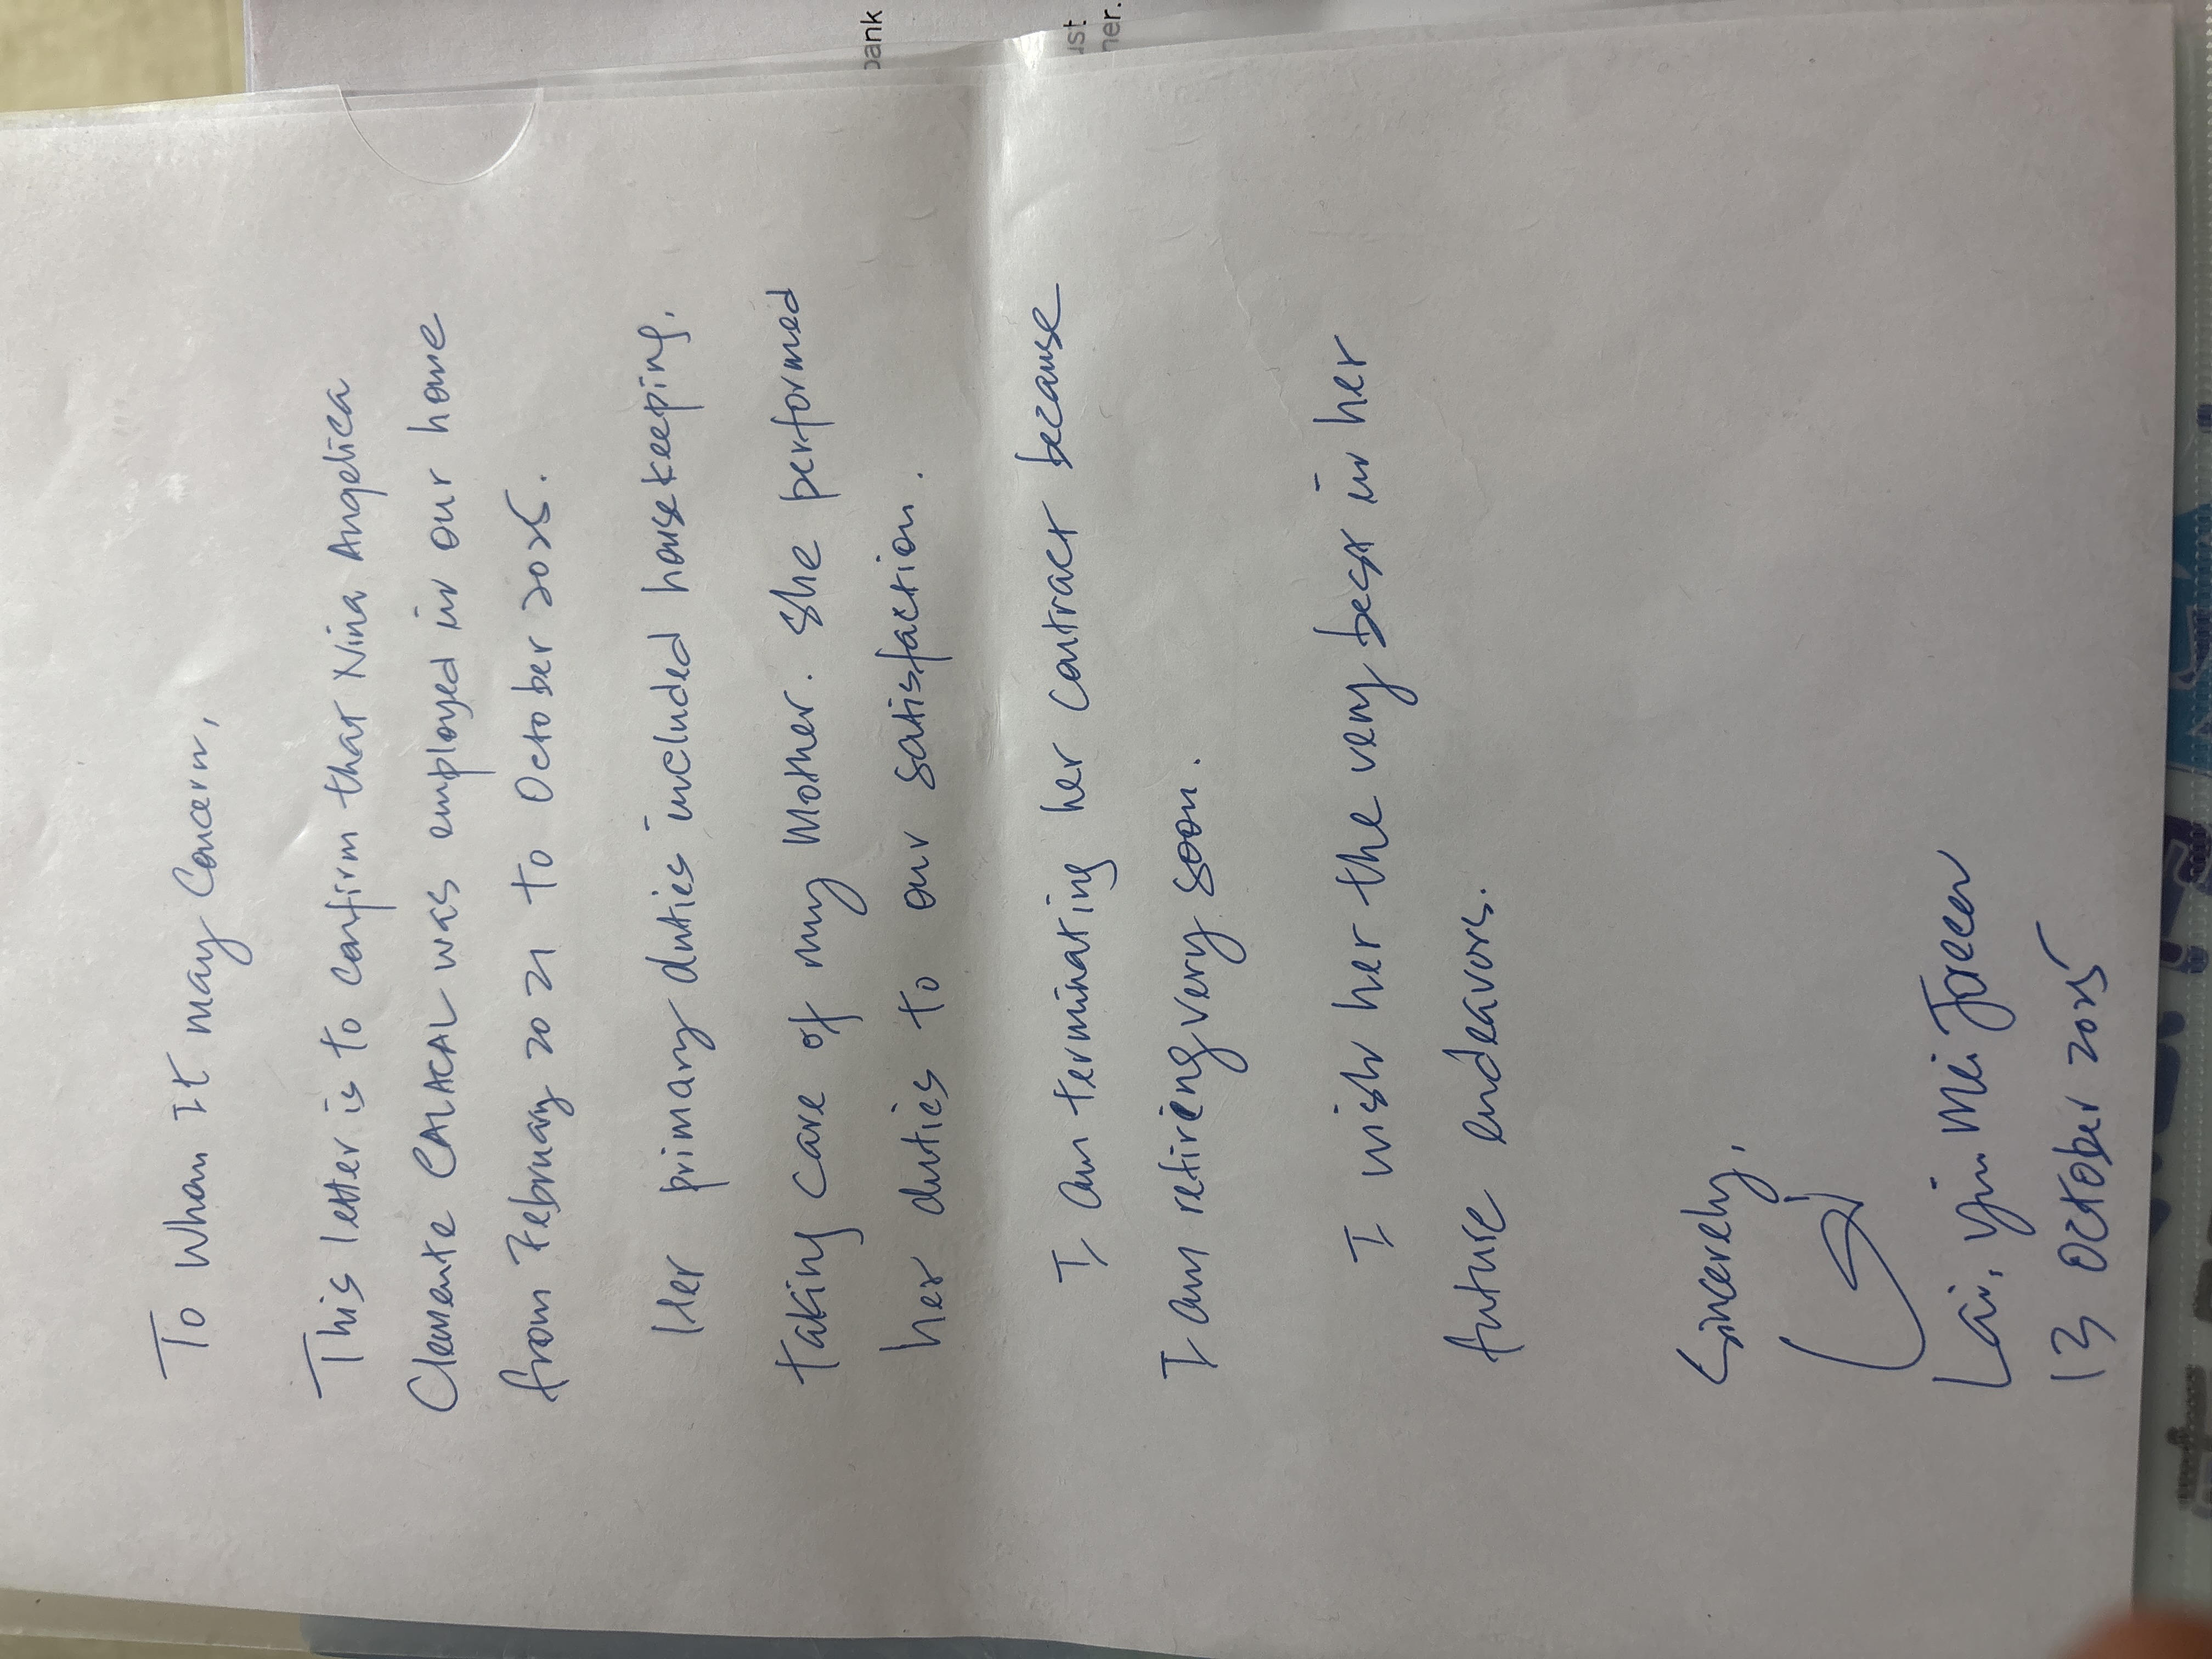 To Whom It may Concern,
This letter is to confirm that Nina Angelica
Clemente CALACAL was employed in our home
from February 2021 to October 2025.
Her primary duties included housekeeping,
taking care of my Mother. She performed
her duties to our satisfaction.
I am terminating her contract because
I am retiring very soon.
I wish her the very best in her
future endeavors.
Sincerely,
Lai, Yim Mei
13 October 2025
bank
her.